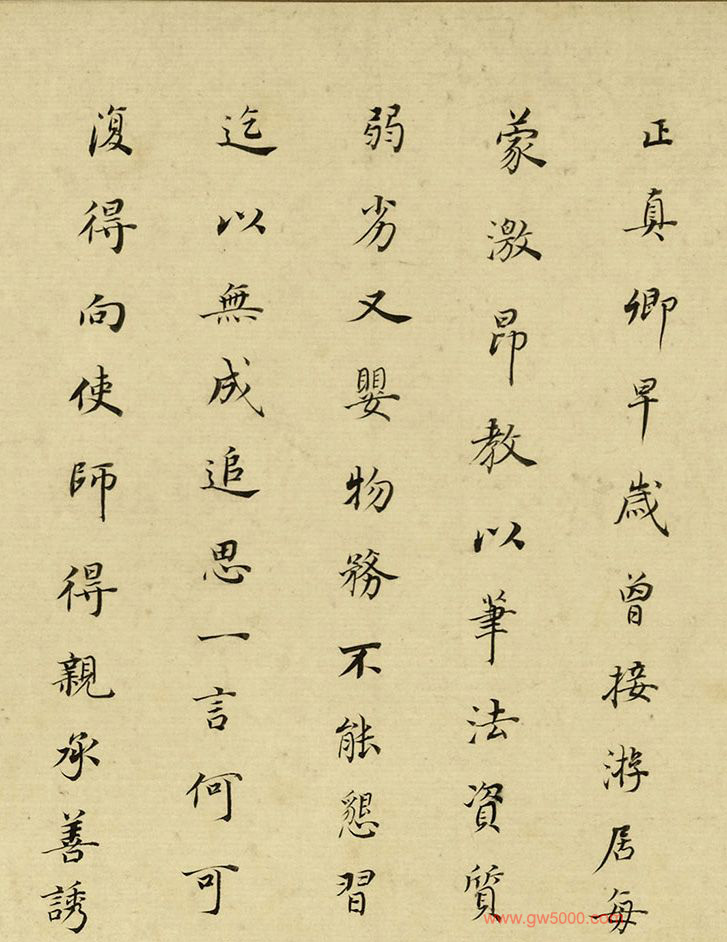 正真卿早歲曾接游居每
蒙激昂教以筆法資質
弱劣又嬰物務不能懇習
迄以無成追思一言何可
復得向使師得親承善誘
www.gw5000.com